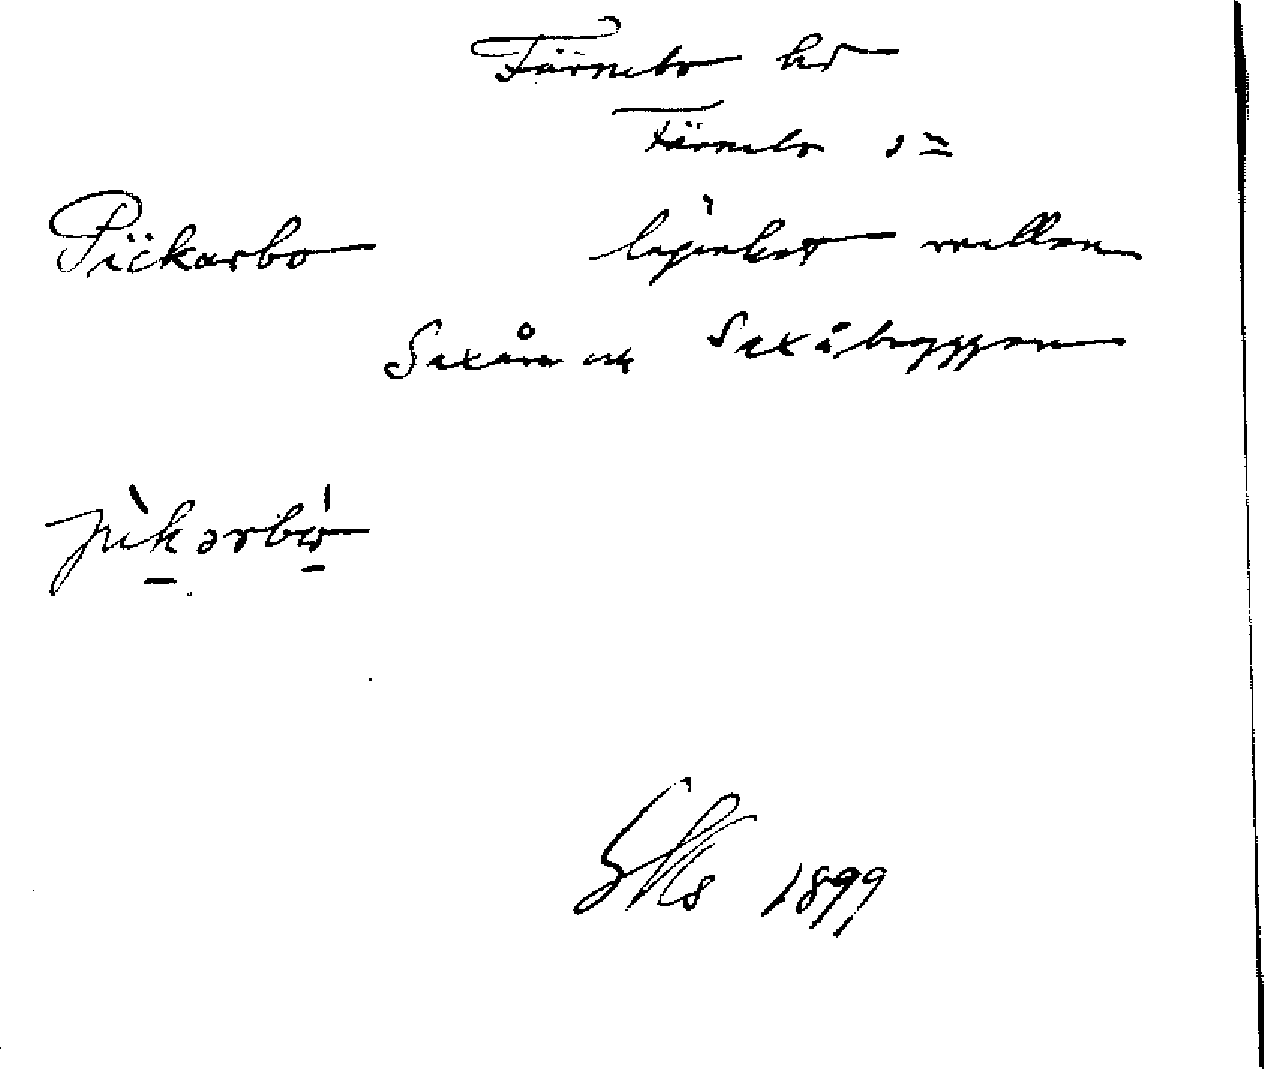 Färnebo hd
Färnebo sn
Pickarbo lägenhet mellan
Saxån och Saxåbyggan
pìkarbó
1899